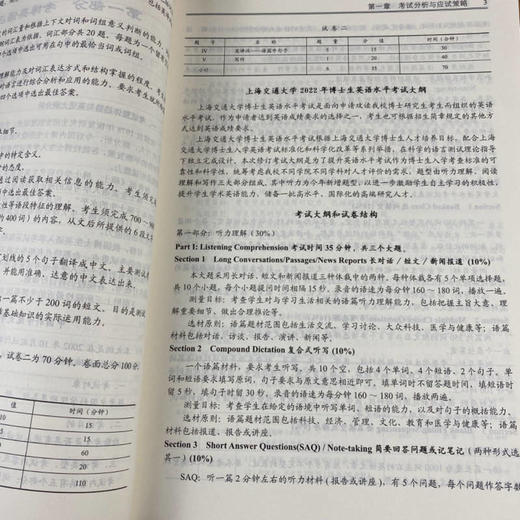 词汇量和根据上下文对词和词组意义判断的能力。
词汇部分共20题,每题为一个留有
个选项中选出可用在句中的最恰当词或词组。
理解能力及对汉语表达方式和结构掌握的程度,
进行综合分析和应用的能力。要求考生
四个选项中选出最佳答案。
的特定含义。
通过阅读获取相关信息的能力。考生须完成700~
的400词)的内容,从文后所提供的6段文
划线的5个句子翻译成中文,主要测试
并能用准确、达意的中文表达出来。
一篇不少于200词的短文。目的是测试
基础知识的实际运用能力。
试卷二为70分钟。卷面总分100分
值
时间(分钟)
10
15
5
15
0
60
0
20
110
第一章 考试分析与应试策略 3
试卷二
题号
名称
题量
分值
时间(分钟)
IV
5
15
30
V
写作
1
20
40
小计
6
35
70
上海交通大学2022年博士生英语水平考试大纲
上海交通大学博士生英语水平考试是面向申请攻读我校博士研究生考生而组织的英语
水平考试。作为申请者达到英语成绩要求的选择之一,考生也可根据招生简章规定的其他方
式达到英语成绩要求。
上海交通大学博士生英语水平考试根据上海交通大学博士生人才培养目标,配合上海
交通大学博士生入学英语考试标准化和科学化改革等系列举措,在科学的语言测试理论指导
下独立完成设计。本次修订考试大纲是为了提升英语水平考试作为博士生入学考查标准的可
靠性和科学性,统筹考虑我校不同学院不同学科对人才评价的需求。题型由听力理解、阅读
理解和写作三大部分组成,其中听力为今年新增题型,以进一步激励学生自主学习的积极性,
提升学生学术英语能力,储备一批高水平、国际化的高端研究人才。
考试大纲和试卷结构
第一部分:听力理解(30%)
Part I: Listening Comprehension 考试时间35分钟,共三个大题。
Section 1 Long Conversations/Passages/News Reports 长对话/短文/新闻报道(10%)
本大题采用长对话、短文和新闻报道三种体裁中的两种,每种体裁各有5个单项选择题,
共10个小题,每个小题提问时间相隔15秒。录音的语速为每分钟160~180词,播放一遍。
测量目标:考查学生对与学习生活相关的语篇听力理解能力,包括把握主旨大意、理解
重要细节、做出合理推论等。
选材原则:语篇题材范围包括生活交流、学习讨论、大众科技、医学与健康等;语篇
材料包括对话、访谈、报告、演讲、新闻等。
Section 2 Compound Dictation 复合式听写(10%)
一个语篇材料,要求考生听写,共10个空,包括4个单词、4个短语、2个句子。单
词和短语要求填写原词,句子要求与原文意思相近即可。填单词时不留答题时间,填短语时
留5秒,填句子时留30秒。录音的语速为每分钟160~180词,播放两遍。
测量目标:考查学生在给定的语境中听写单词、短语的能力,以及对句子的概括能力。
选材原则:语篇题材范围包括科技、经济、管理、文化、教育和医学与健康等;语篇
材料包括报道、报告或讲座。
Section 3 Short Answer Questions(SAQ) / Note-taking 简要回答问题或记笔记(两种形式选
其一)(10%)
SAQ:听一篇2分钟左右的听力材料(报告或讲座),有5个问题,每个问题作答字数